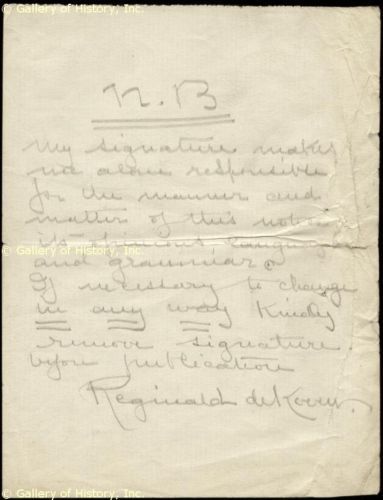 © Gallery of History, Inc.
N.B
My signature makes
me alone responsible
for the manner and
matter of this notice
its opinions, language
and grammar.
If necessary to change
in any way kindly
remove signature
before publication
Reginald de Koven.
© Gallery of History, Inc.
© Gallery of History, Inc.
© Gallery of History, Inc.